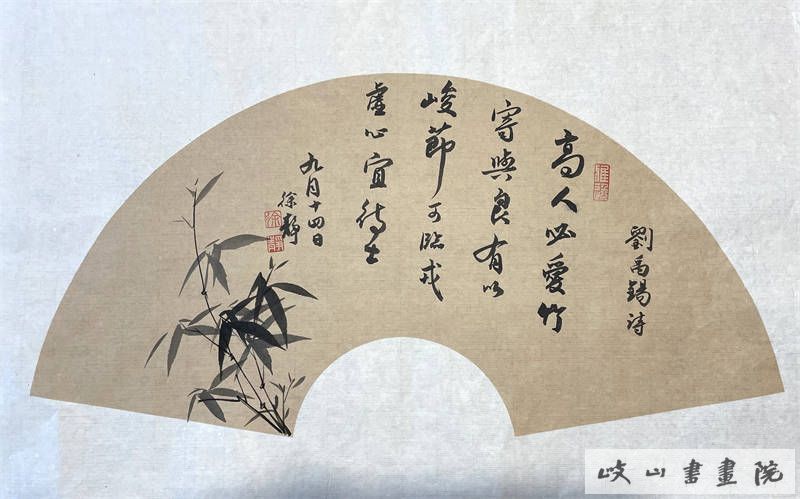 劉禹錫詩
高人必愛竹
寄與良有以
峻節可臨戎
虛心宜待士
九月十四日
徐靜
徐靜
岐山書畫院